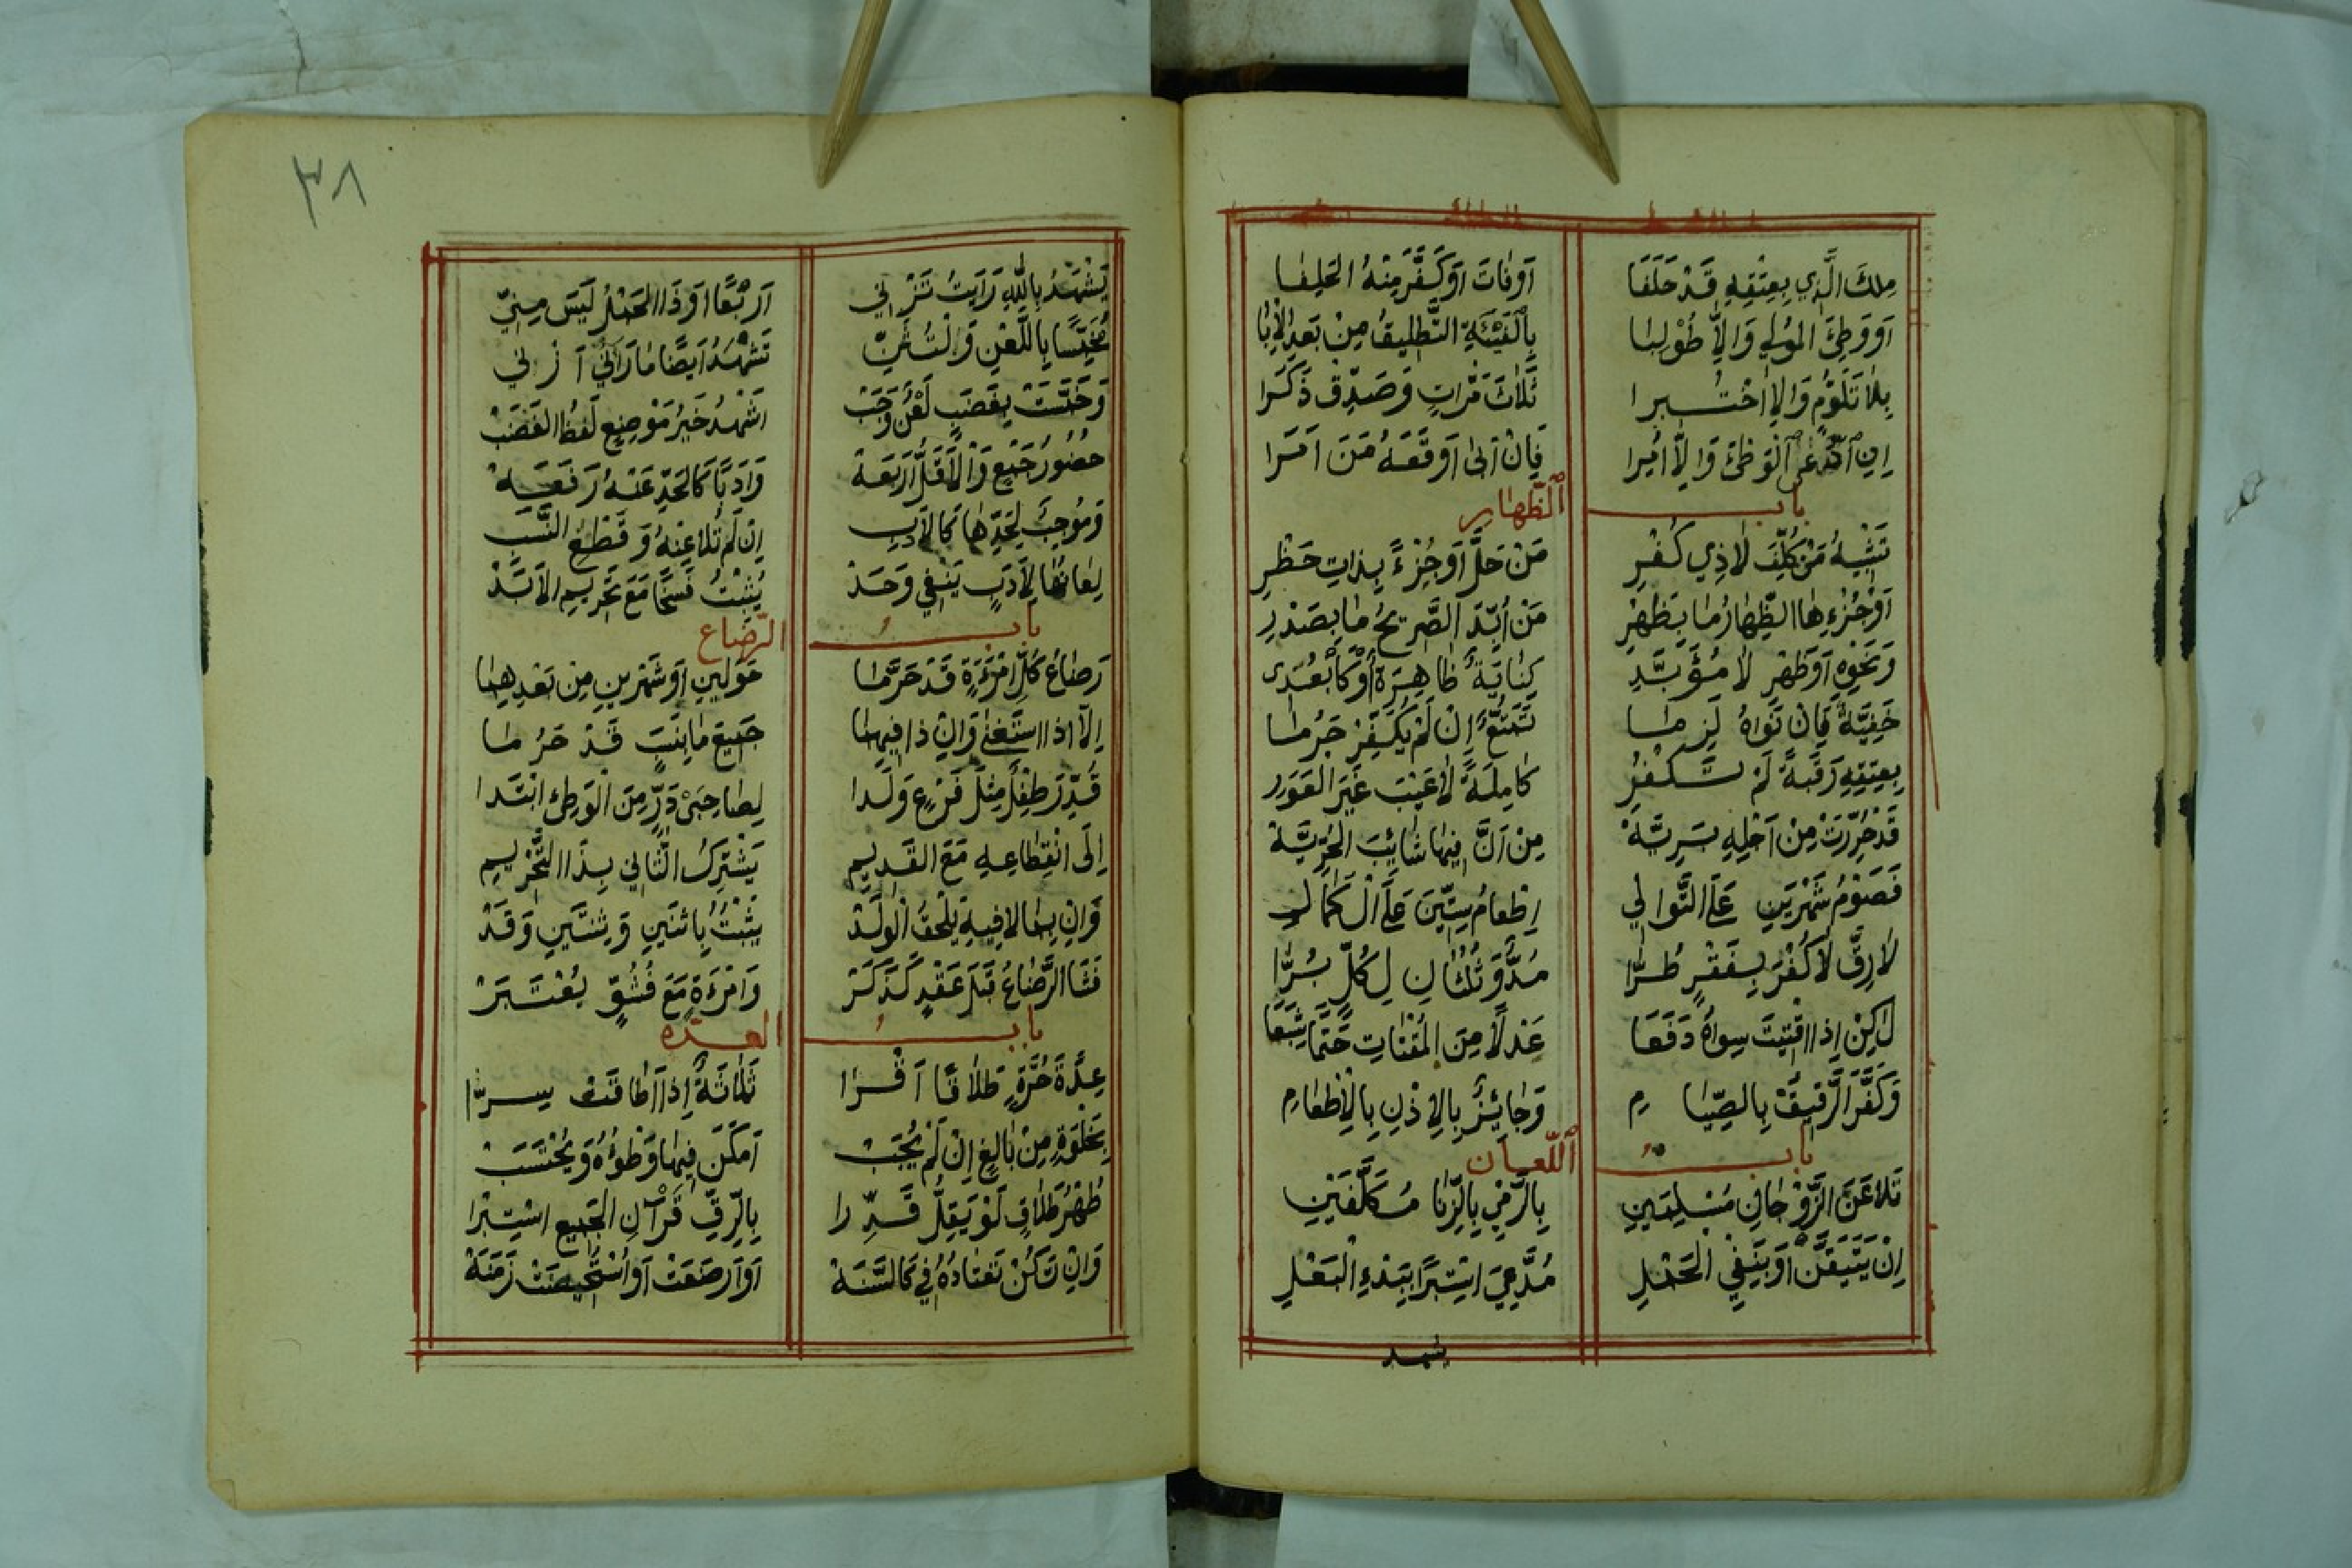 مِلكَ الَّذِي بِعِتْقِهِ قَدْ حَلَفَا اَوْفَاتَ اَوْكَفَّرَ مِنْهُ الحَلِفَا
اَوْ وَطِئَ المُولِي وَاِلاَّ طُولِبَا بِالْفَيْئَةِ التَّطْلِيقُ مِنْ بَعدِ الْاِبَا
بِلاَ تَلَوُّمٍ وَاِلاَّ اخْتُبِرا ثَلاَثَ مَرَّاتٍ وَصَدِّقْ ذَكَرَا
اِنِ ادَّعَى الْوَطْئَ وَاِلاَّ اُمِرا فَاِنْ اَبَى اَوْقَعَهُ مَنَ اَمَرَا
بابُ الظِّهَارِ
تَشْبِيهُ مَنْ كُلِّفَ لاَ ذِي كُفْرِ مَنْ حَلَّ اَوْ جُزْءً بِذَاتِ حَظْرِ
اَوْ جُزْءِهَا الظِّهَارُ مَا بِظَهْرِ مَنْ اُبِّدَ الصَّرِيحُ مَا بِصَدْرِ
وَنَحْوِهِ اَوْ ظَهْرِ لاَ مُؤَبَّدِ كِنَايَةٌ ظَاهِرَةٌ اَوْ كَابْعُدِى
خَفِيَّةٌ فَاِنْ نَوَاهُ لَزِمَا تَمَتُّعٌ اِنْ لَمْ يُكَفِّرْ حَرُمَا
بِعِتْقِهِ رَقَبَةً لَمْ تَكْفُرُ كَامِلَةً لاَ عَيْبَ غَيْرَ العَوَرِ
قَدْ حُرِّرَتْ مِنْ اَجْلِهِ بَرِيَّةْ مِنْ اَنَّ فِيهَا شَائِبَ الحُرِّيَّةْ
فَصَوْمُ شَهْرَينِ عَلَى التَّوَالِي اِطْعَامُ سِتِّينَ عَلَى الْكَمَالِ
لاَ رِقَّ لاَ كُفْرَ بِفَقْرٍ طُرَّا مُدٌّ وَثُلْثَانِ لِكُلٍّ بُرَّا
لَكِنْ اِذَا اقْتِيتَ سِوَاهُ دَفَعَا عَدْلاً مِنَ المُقْتَاتِ حَتْمًا شِبَعَا
وَكَفَّرَ الرَّقِيقُ بِالصِّيَامِ وَجَائِزٌ بِالاِذْنِ بِالْاِطْعَامِ
بابُ اللِّعَانِ
تَلاَعَنَ الزَّوْجَانِ مُسْلِمَينِ بِالرَّمْيِ بِالزِّنَا مُكَلَّفَيْنِ
اِنْ يَتَيَقَّنْ اَوْ بِنَفْيِ الْحَمْلِ مُدَّعِيَ اسْتِبْرًا بِبَدْءِ الْبَعْلِ
يشهد
٣٨
يَشْهَدُ بِاللَّهِ رَاَيتُ تَزْنِي اَرْبَعًا اَوْ ذَا الحَمْلُ لَيسَ مِنِّي
مُخَمِّسًا بِاللَّعْنِ وَلْتُثَنِّ تَشْهَدُ اَيضًا مَا رَآنِي اَزْنِي
وَخَمَّسَتْ بِغَضَبٍ لَعْنٌ وَجَبْ اشْهَدُ خَيرُ مَوْضِعٍ لَفْظُ الغَضَبْ
حضُورُ جَمْعٍ وَالْاَقَلُّ اَرْبَعَةْ وَاَدَبًا كَالحَدِّ عَنْهُ رَفَعَهْ
وَمُوجِبٌ لِحَدِّهَا كَالاَدَبِ اِنْ لَمْ تُلاَعِنْهُ وَقَطْعُ النَّسَبِ
لِعَانُهَا لِاَدَبٍ يَنْفِي وَحَدْ يُثْبِتُ فَسْخًا مَعَ تَحْرِيمِ الاَبَدْ
بابُ الرَّضَاعِ
رَضَاعُ كُلِّ امْرَءَةٍ قَدْ حَرَّمَا حَوْلَينِ اَوْ شَهْرَينِ مِنْ بَعْدِهِمَا
اِلاَّ اذا اسْتَغْنَى وَاِنْ ذَا فِيهِمَا جَمِيعَ مَا بِنَسَبٍ قَدْ حَرُمَا
قُدِّرَ طِفْلٌ مِثْلَ فَرْعٍ وَلَدَا لِصَاحِبَىْ دَرٍّ مِنَ الْوَطِئِ ابْتَدَا
اِلَى انْقِطَاعِهِ مَعَ القَدِيمِ يَشْتَرِكُ الثَّانِي بِذَا التَّحْرِيمِ
وَاِنْ بِمَا لاَ فِيهِ يَلْحَقُ الْوَلَدْ يَثْبُتُ بِاثْنَينِ وَثِنْتَينِ وَقَدْ
فَشَا الرَّضَاعُ قَبْلَ عَقْدٍ كَذَكَرْ وَامْرَءَةٍ مَعَ فُشُوٍّ يُعْتَبَرْ
بابُ العدّه
عِدَّةُ حُرَّةٍ طَلاَقًا اَقْرَا ثَلاَثَةٌ اِذَا اَطَاقَتْ سِرَّا
بِخَلْوَةِ مِنْ بَالِغٍ اِنْ لَمْ يُجَبْ اَمْكَنَ فِيهَا وَطْؤُهُ وَيُحْتَسَبْ
طُهْرُ طَلاَقٍ لَوْ يَقِلُّ قَدِّرَا بِالرِّقِّ قَرْآنِ الجَمِيعِ اسْتِبْرا
وَاِنْ تَكُنْ تَعْتَادُهُ فِي كَالسَّنَهْ اَوْ اَرْضَعَتْ اَوْ اسْتُحِيضَتْ زَمَنَهْ